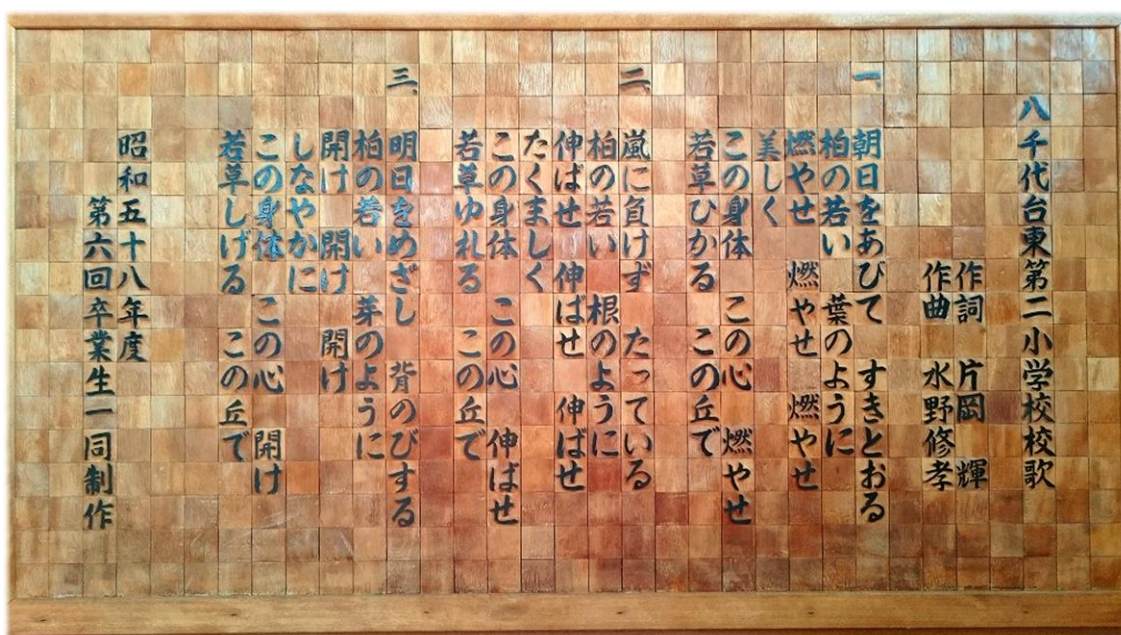 八千代台東第二小学校校歌
作詞 片岡 輝
作曲 水野修孝
一、
朝日をあびて すきとおる
柏の若い 葉のように
燃やせ 燃やせ 燃やせ
美しく
この身体 この心 燃やせ
若草ひかる この丘で
二、
嵐に負けず たっている
柏の若い 根のように
伸ばせ 伸ばせ 伸ばせ
たくましく
この身体 この心 伸ばせ
若草ゆれる この丘で
三、
明日をめざし 背のびする
柏の若い 芽のように
開け 開け 開け
しなやかに
この身体 この心 開け
若草しげる この丘で
昭和五十八年度
第六回卒業生一同制作